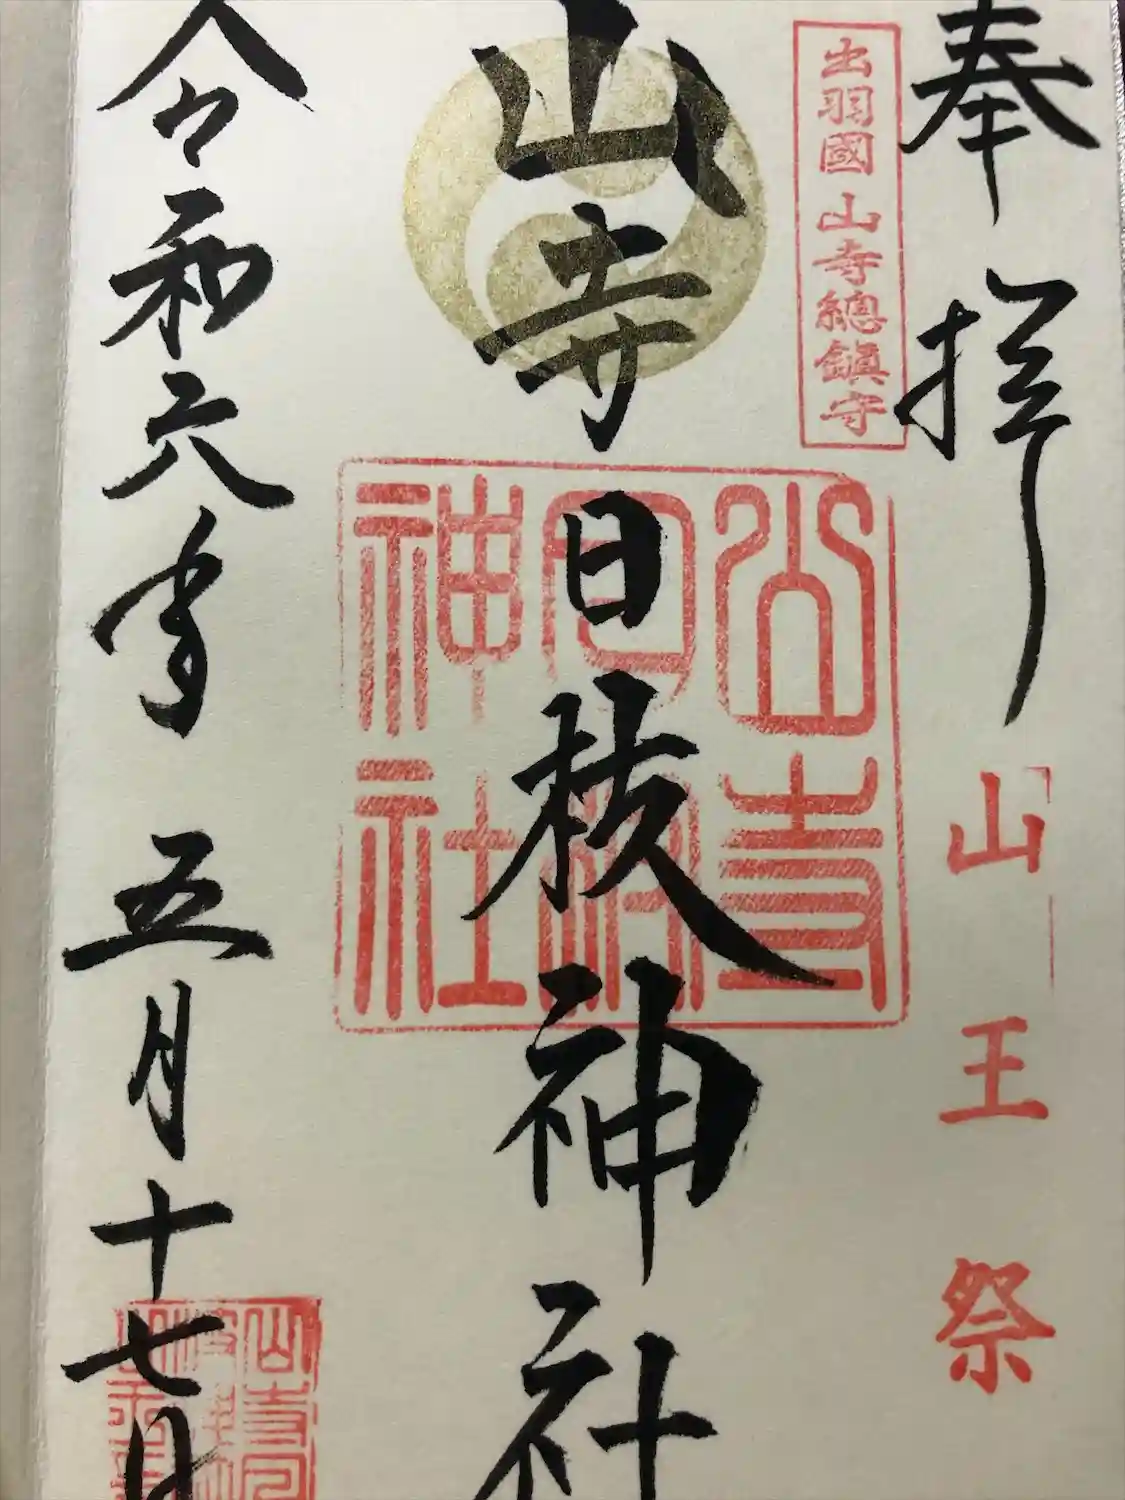 奉拝
山王祭
出羽國山寺總鎮守
山寺日枝神社
山寺日枝神社
令和六年五月十七日